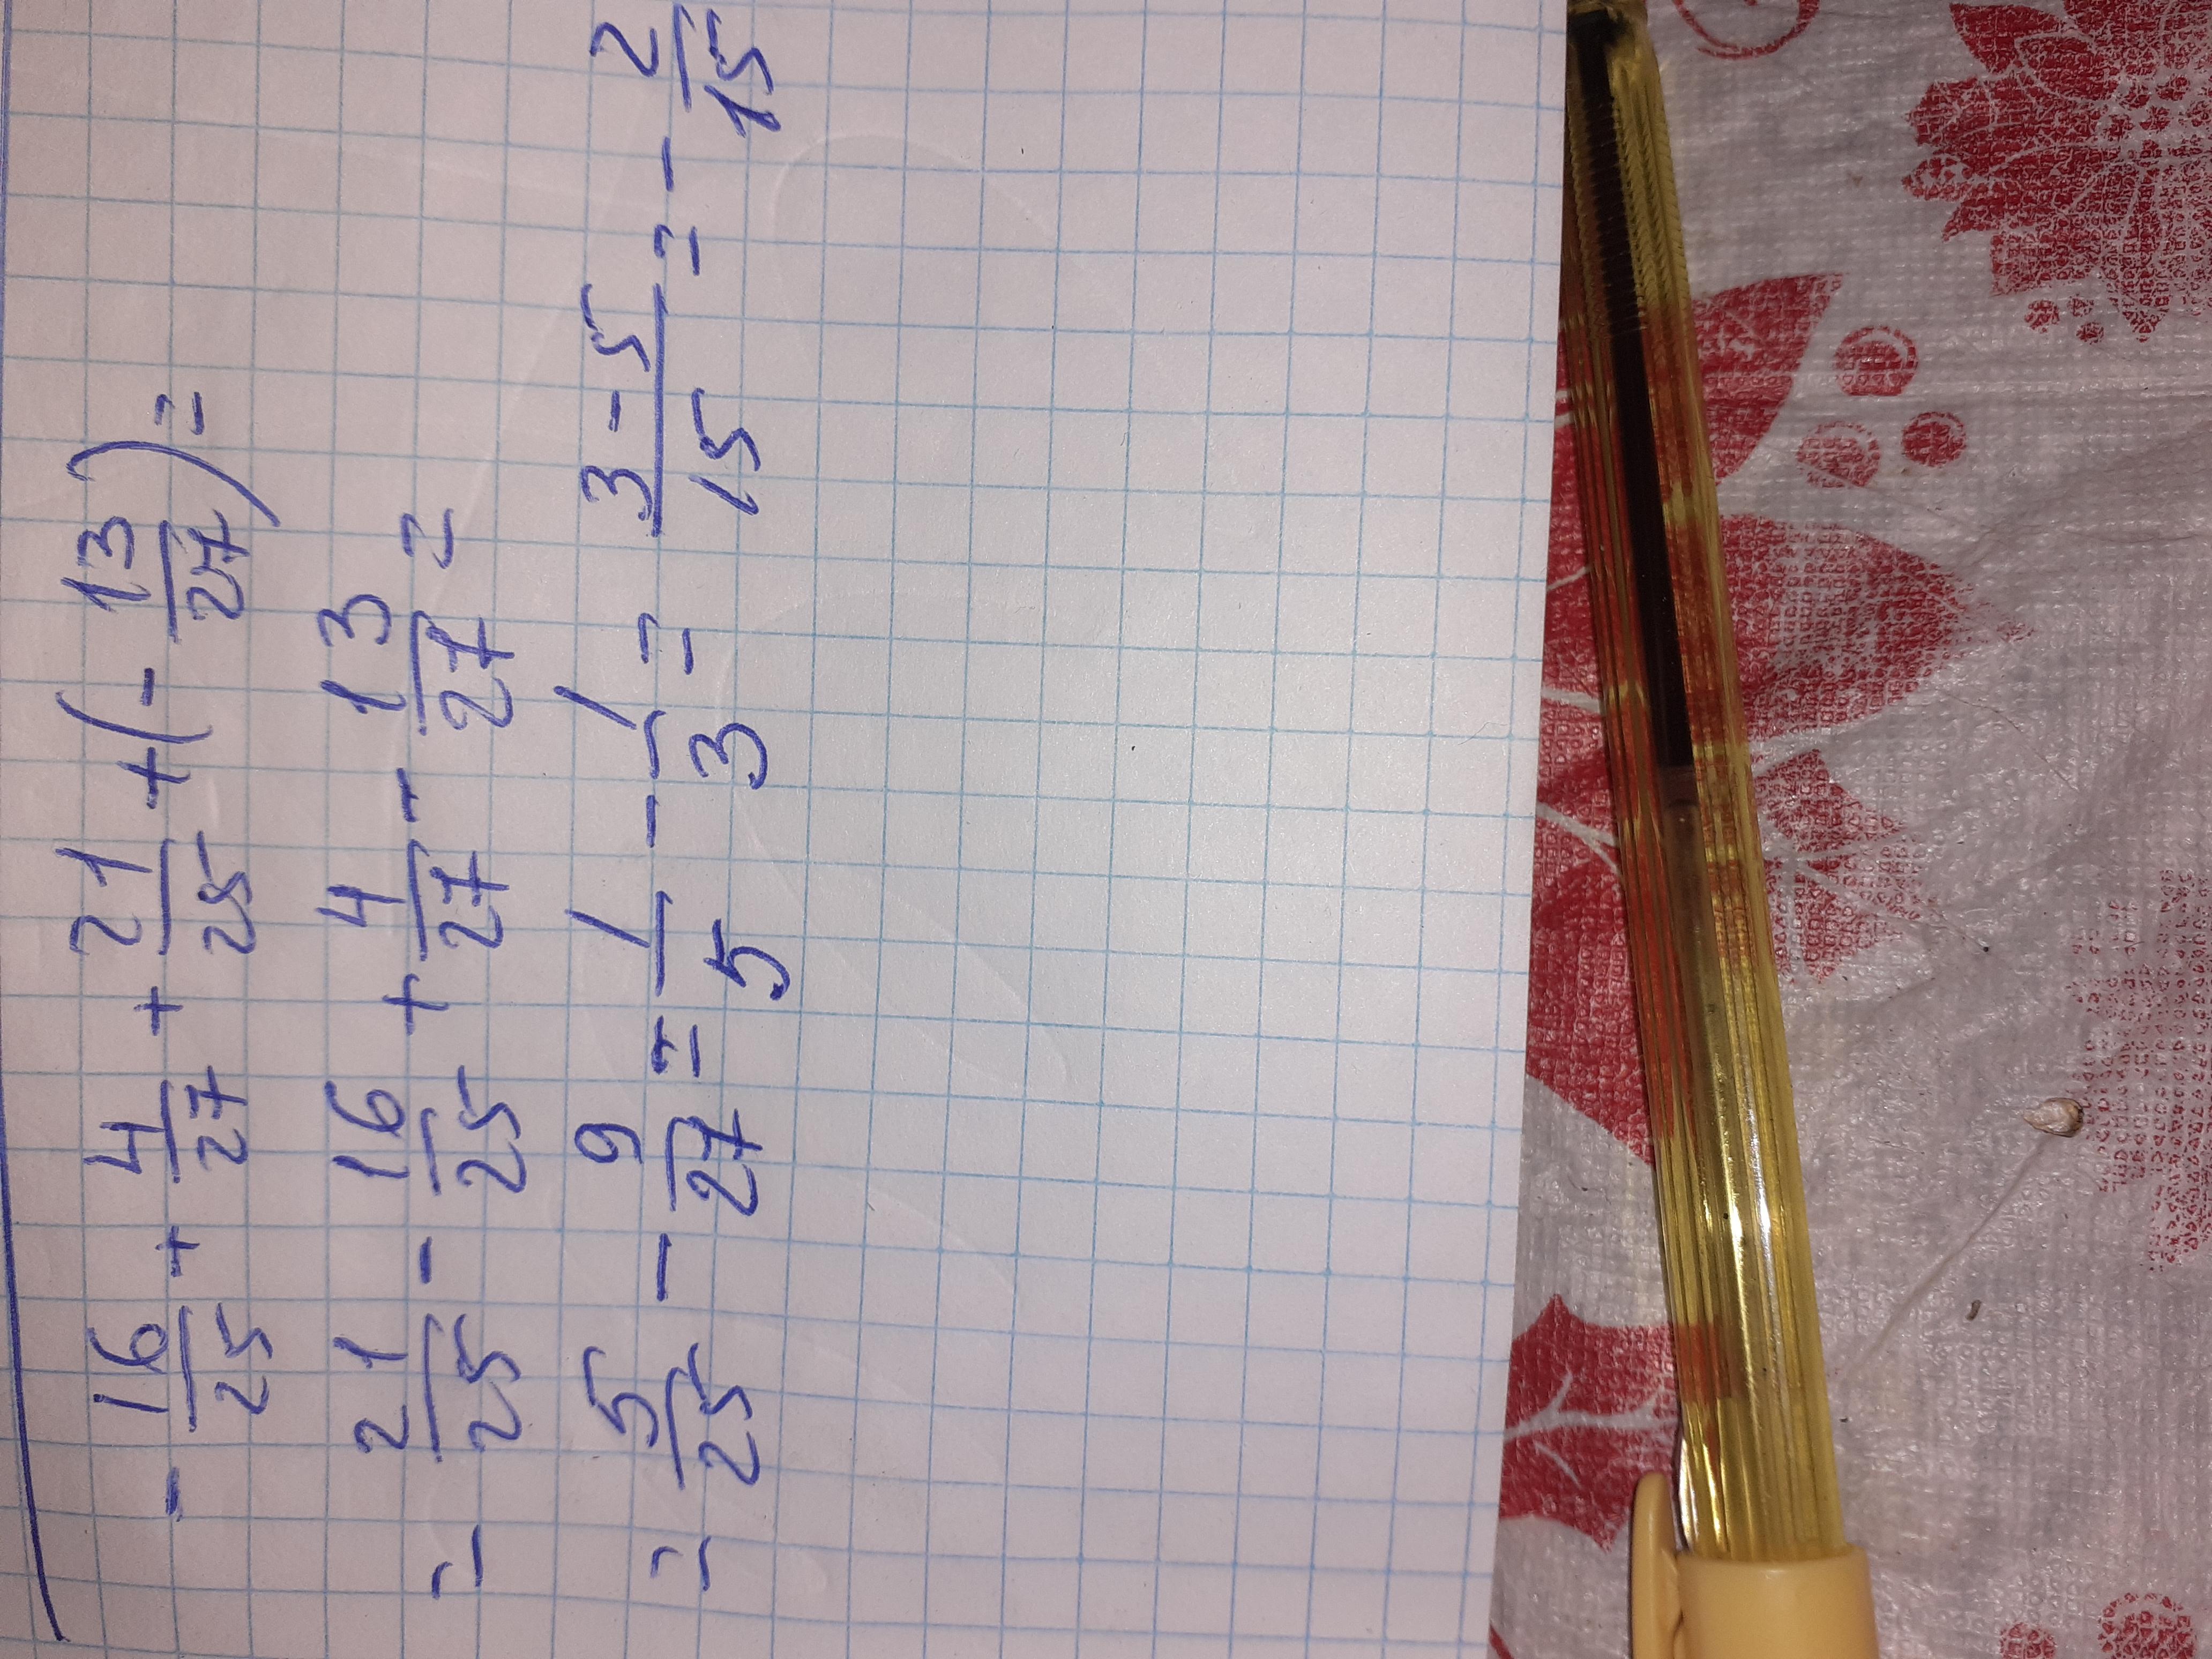 - 16/25 + 4/27 + 21/25 + (- 13/27) =
= 21/25 - 16/25 + 4/27 - 13/27 =
= 5/25 - 9/27 = 1/5 - 1/3 = 3-5/15 = - 2/15